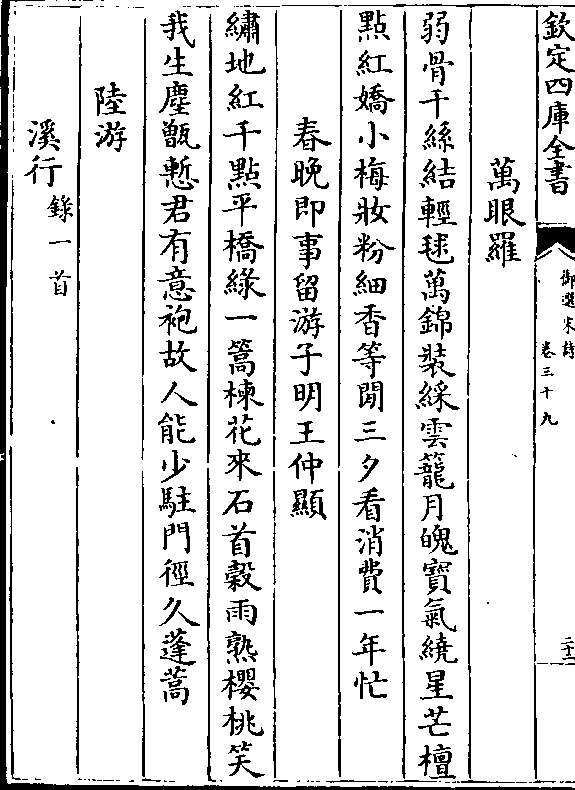 欽定四庫全書
御選宋詩
卷三十九
二十二
萬眼羅
弱骨千絲結輕毬萬錦裝綵雲籠月魄寶氣繞星芒檀
點紅嬌小梅妝粉細香等閒三夕看消費一年忙
春晚即事留游子明王仲顯
繡地紅千點平橋綠一篙楝花來石首穀雨熟櫻桃笑
我生塵甑慙君有意袍故人能少駐門徑久蓬蒿
陸游
溪行錄一首